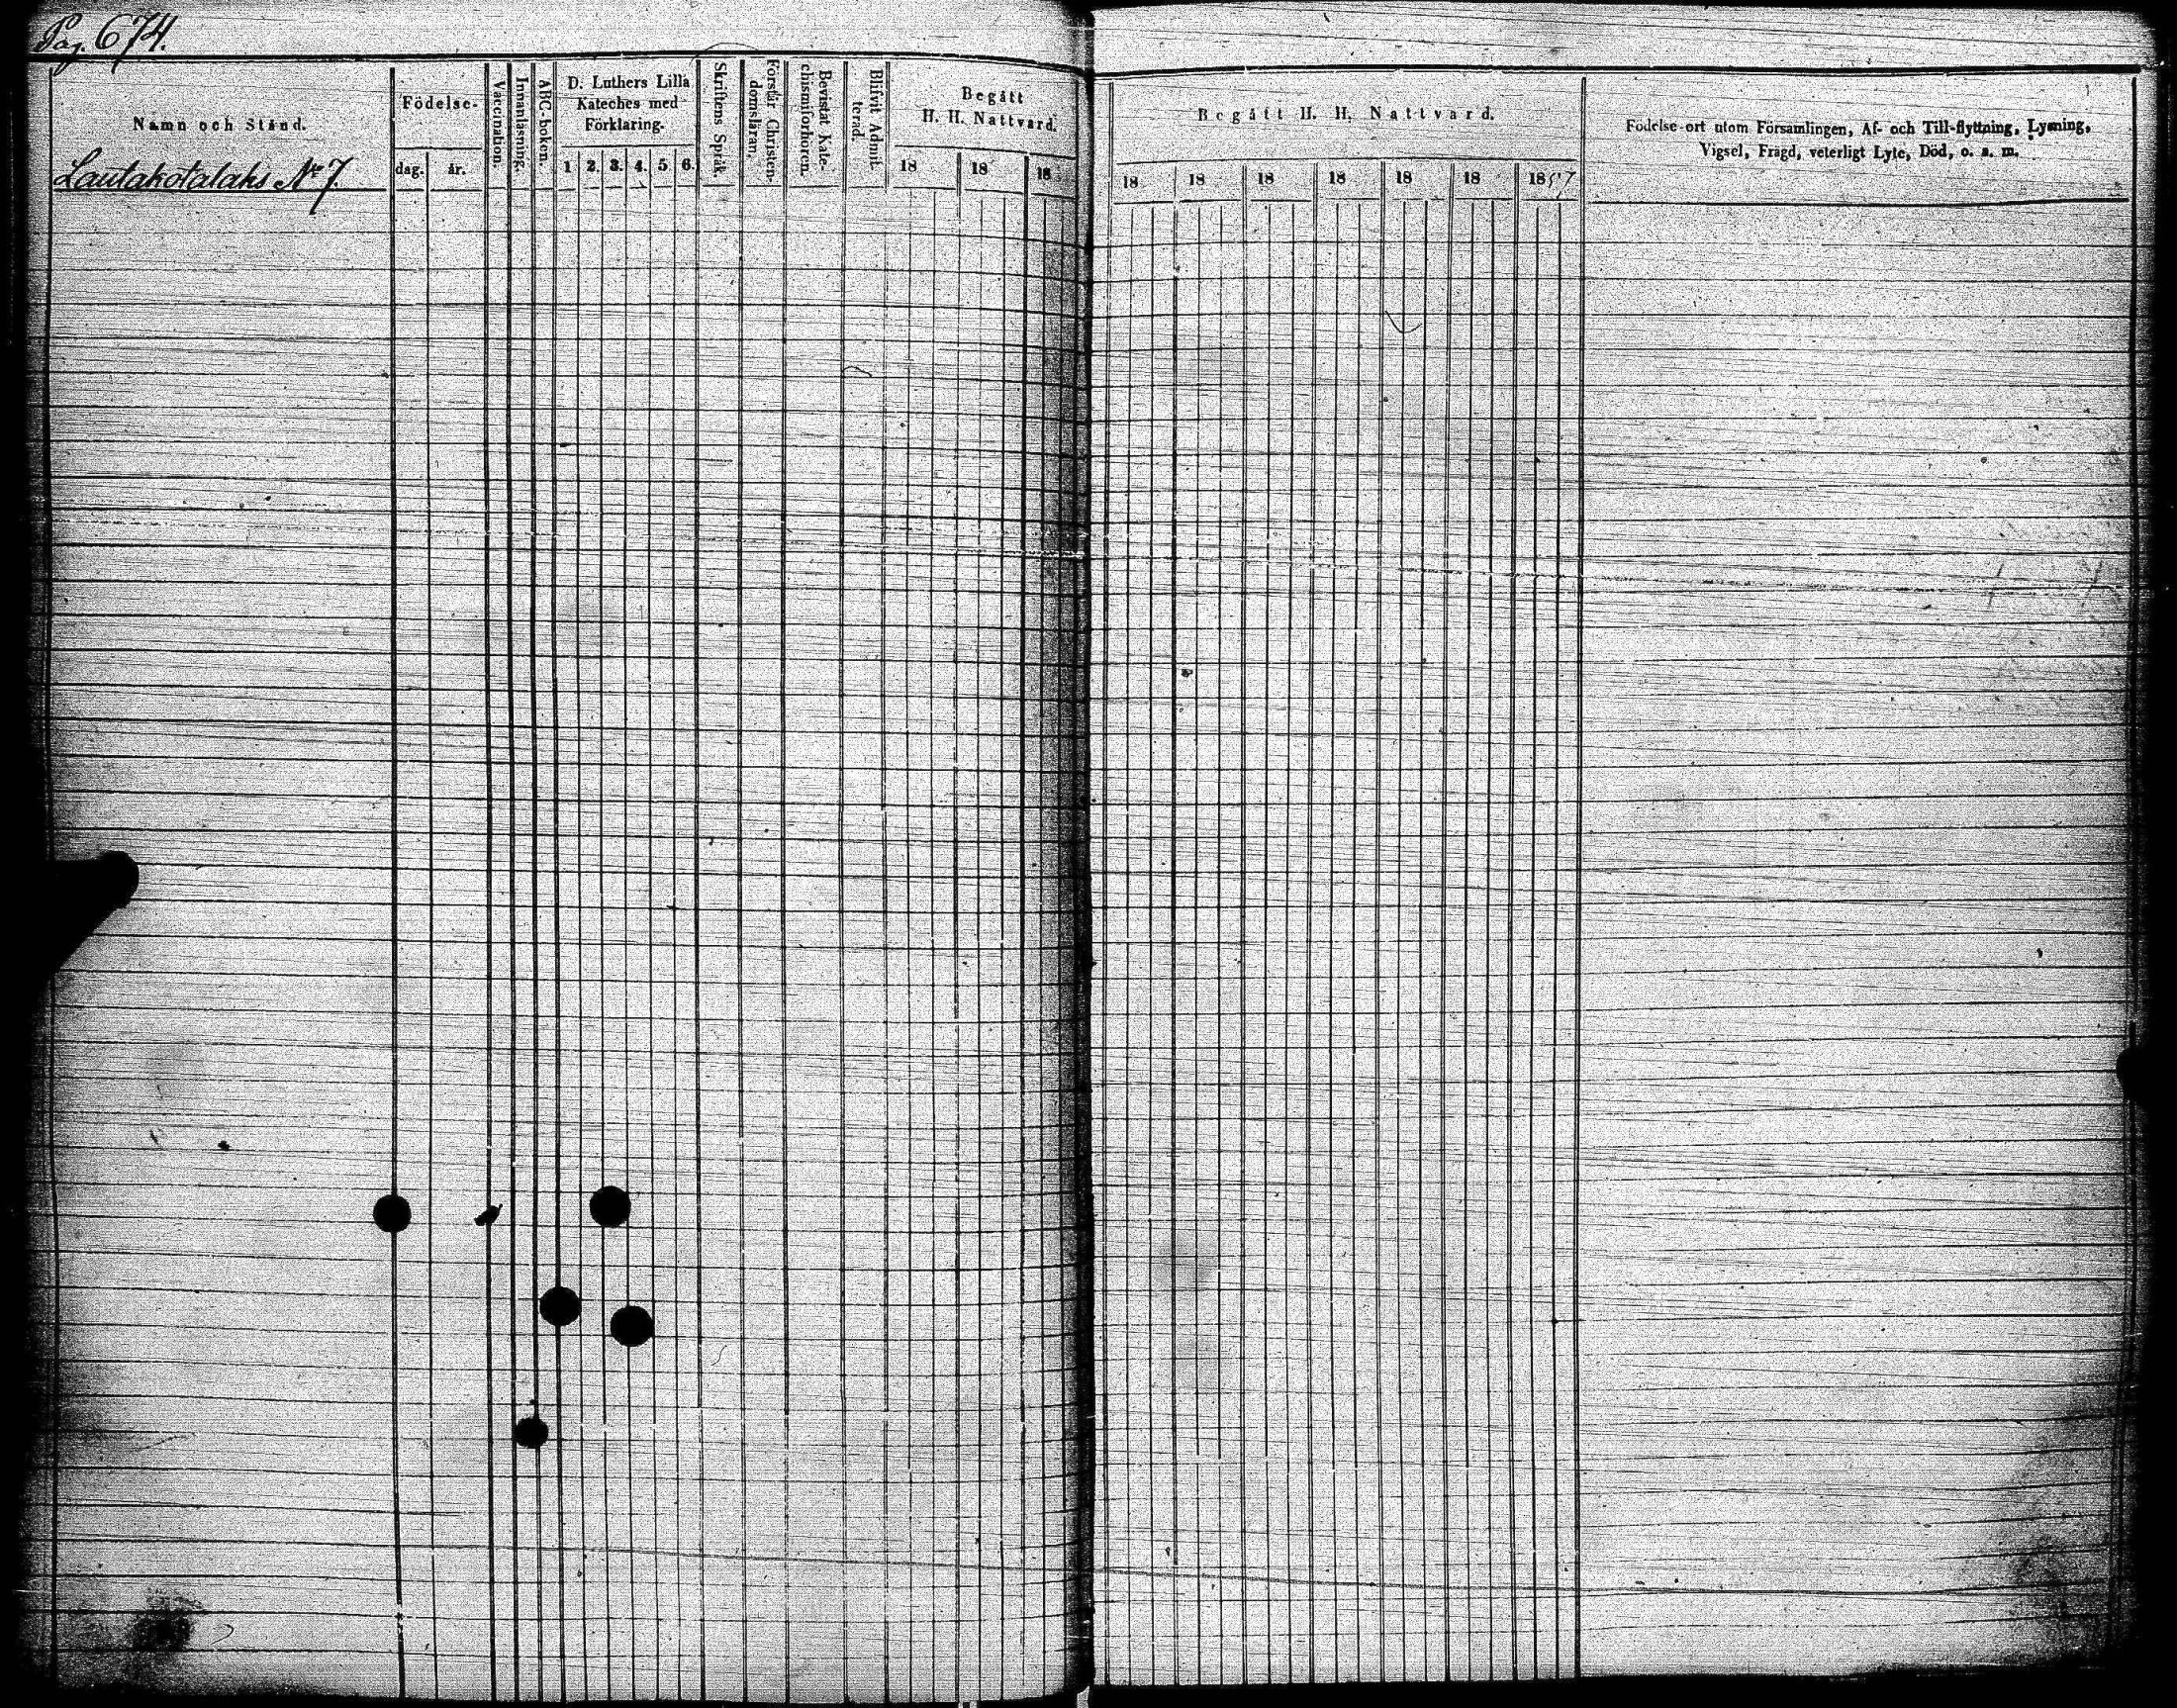 Pag. 674.
Namn och Stånd.
Lautakotalaks No 7.
Födelse-
dag. år.
Vaccination.
Innanläsning.
ABC-boken.
D. Luthers Lilla
Kateches med
Förklaring.
1 2. 3. 4. 5 6.
Skriftens Språk.
Förstår Christen-
domsläran.
Bevistat Kate-
chismiförhören.
Blifvit Admit-
terad.
Begått
H. H. Nattvard.
18 18 18
Begått H. H. Nattvard.
18 18 18 18 18 18 1857
Födelse-ort utom Församlingen, Af- och Till-flyttning, Lysning,
Vigsel, Frägd, veterligt Lyte, Död, o. s. m.